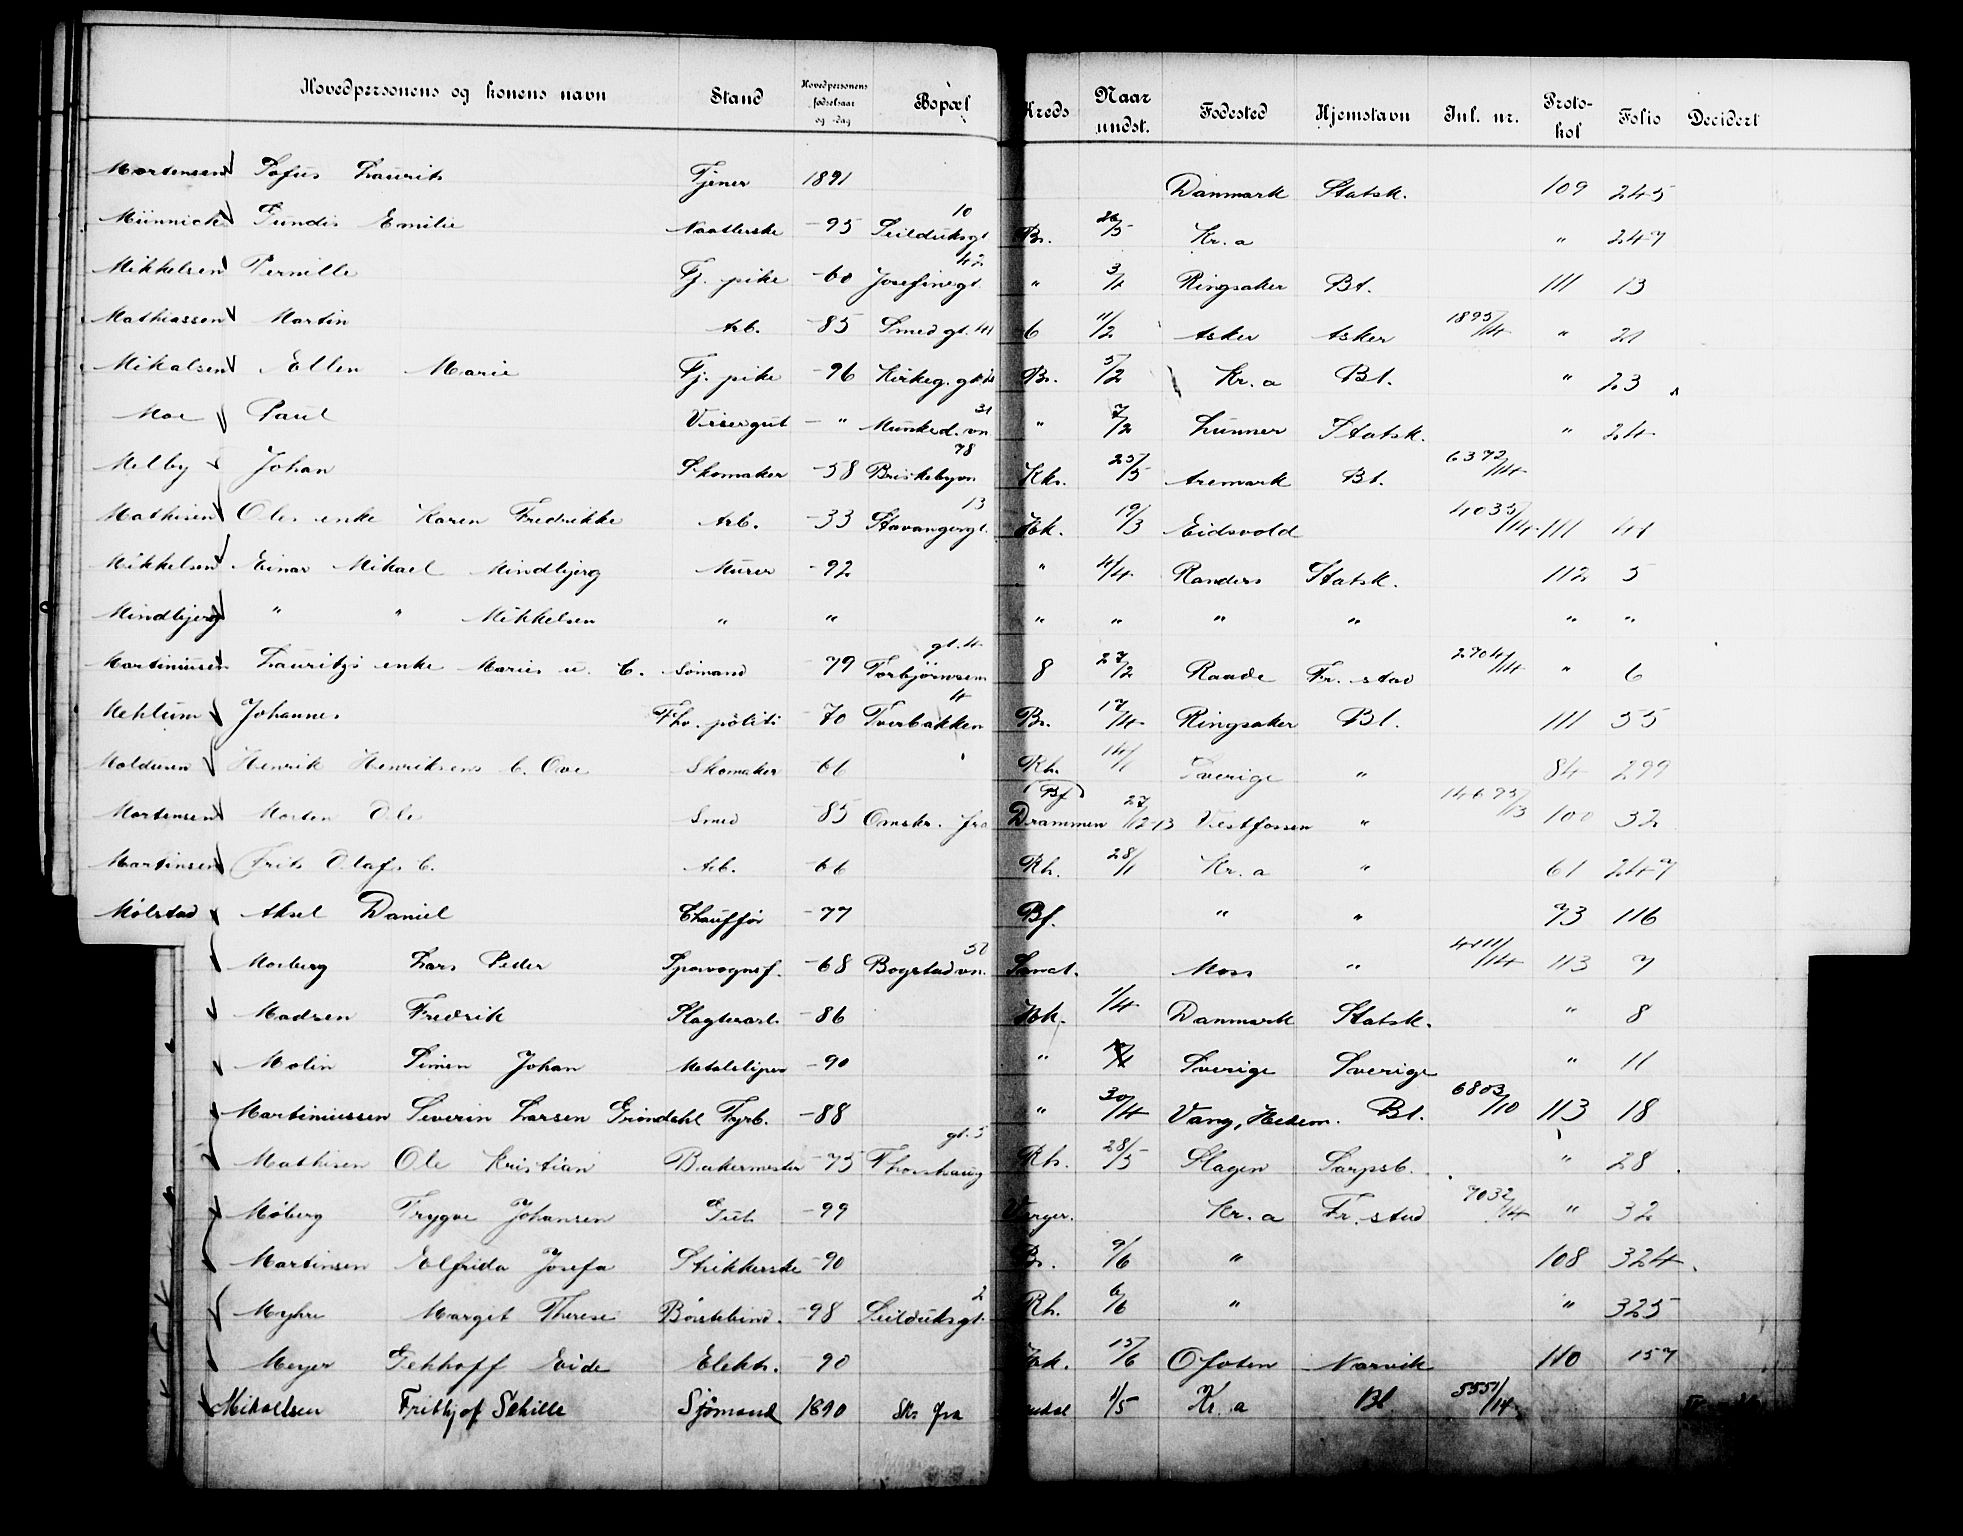 Hovedpersonens og konens navn Stand Hovedpersonens fødselsaar og -dag Bopæl Kreds Naar undst. Fødested Hjemstavn Jnl. nr. Protokol Folio Decidert
Mortensen Sofus Laurits Tjener 1891 Danmark Statsk. 109 245
Münnich Gundis Emilie Naatlerske -95 Seilduksgt. 10 Br. 26/5 Kr.a " 247
Mikkelsen Pernille Tj. pike -60 Josefinegt. 42 " 3/4 Ringsaker Bt. 111 13
Mathiassen Martin Arb. -85 Smedgt. 41 6 11/2 Asker Asker 1895/14 " 21
Mikalsen Ellen Marie Tj. pike -96 Kirkeg. gt. Br. 5/2 Kr.a Bt. " 23
Moe Paul Visergut - " Munked.vn 31 " 7/2 Lunner Statsk. " 24
Melby Johan Skomaker -58 Briskebyvn 78 Kk. 25/5 Aremark Bt. 6372/14
Mathisen Oles enke Karen Fredrikke Arb. -33 Stavangergt. 13 Hk. 19/3 Eidsvold 4035/14 111 41
Mikkelsen Einar Mikael Mindbjerg Murer -92 " 4/4 Randers Statsk. 112 5
Mindbjerg " " Mikkelsen " " " " " " " "
Martiniusen Lauritz's enke Maries u. b. Sømand -79 Torbjørnsens gt. 4 8 27/2 Raade Fr.stad 2704/14 " 6
Mehlum Johannes Fhv. politi -70 Tverbakken 4 Br. 17/4 Ringsaker Bt. 111 55
Moldusen Henrik Henriksens b. Ove Skomaker -66 Rh. 14/1 Sverige " 84 299
Mortensen Morten Ole Smed -85 Omskr. fra Drammen (Bf) 27/12-13 Vestfossen " 14695/13 100 32
Martinsen Frits Olafs b. Arb. -66 Rh. 28/1 Kr.a " 61 247
Mølstad Aksel Daniel Chauffør -77 Bf. " " 73 116
Moeberg Lars Peder Sporvognsf. -68 Bogstadvn. 52 Sanct. Moss " 4111/14 113 7
Madsen Fredrik Slagterarb. -86 Hk. 1/4 Danmark Statsk. " 8
Molin Simen Johan Metalsliper -90 " Sverige Sverige " 11
Martiniussen Severin Larsen Grøndahl Fyrb. -88 " 30/4 Vang, Hedem. Bt. 6803/10 113 18
Mathisen Ole Kristian Bakermester -75 Thorshaug gt. 5 Rh. 28/5 Slagen Sarpsb. " 28
Moberg Trygve Johansen Gut -99 Verger. Kr.a Fr.stad 7032/14 " 32
Martinsen Elfrida Josefa Strikkerske -90 Br. 9/6 " 108 324
Myhre Margit Therese Børstebind. -98 Seilduksgt. 2 Rh. 6/6 " " 325
Meyer Gekhoff Eide Elektr. -90 Hk. 15/6 Ofoten Narvik 110 157
Mikalsen Frithjof Schille Sjømand 1890 Skr fra 1/5 Kr.a Bt 5551/14